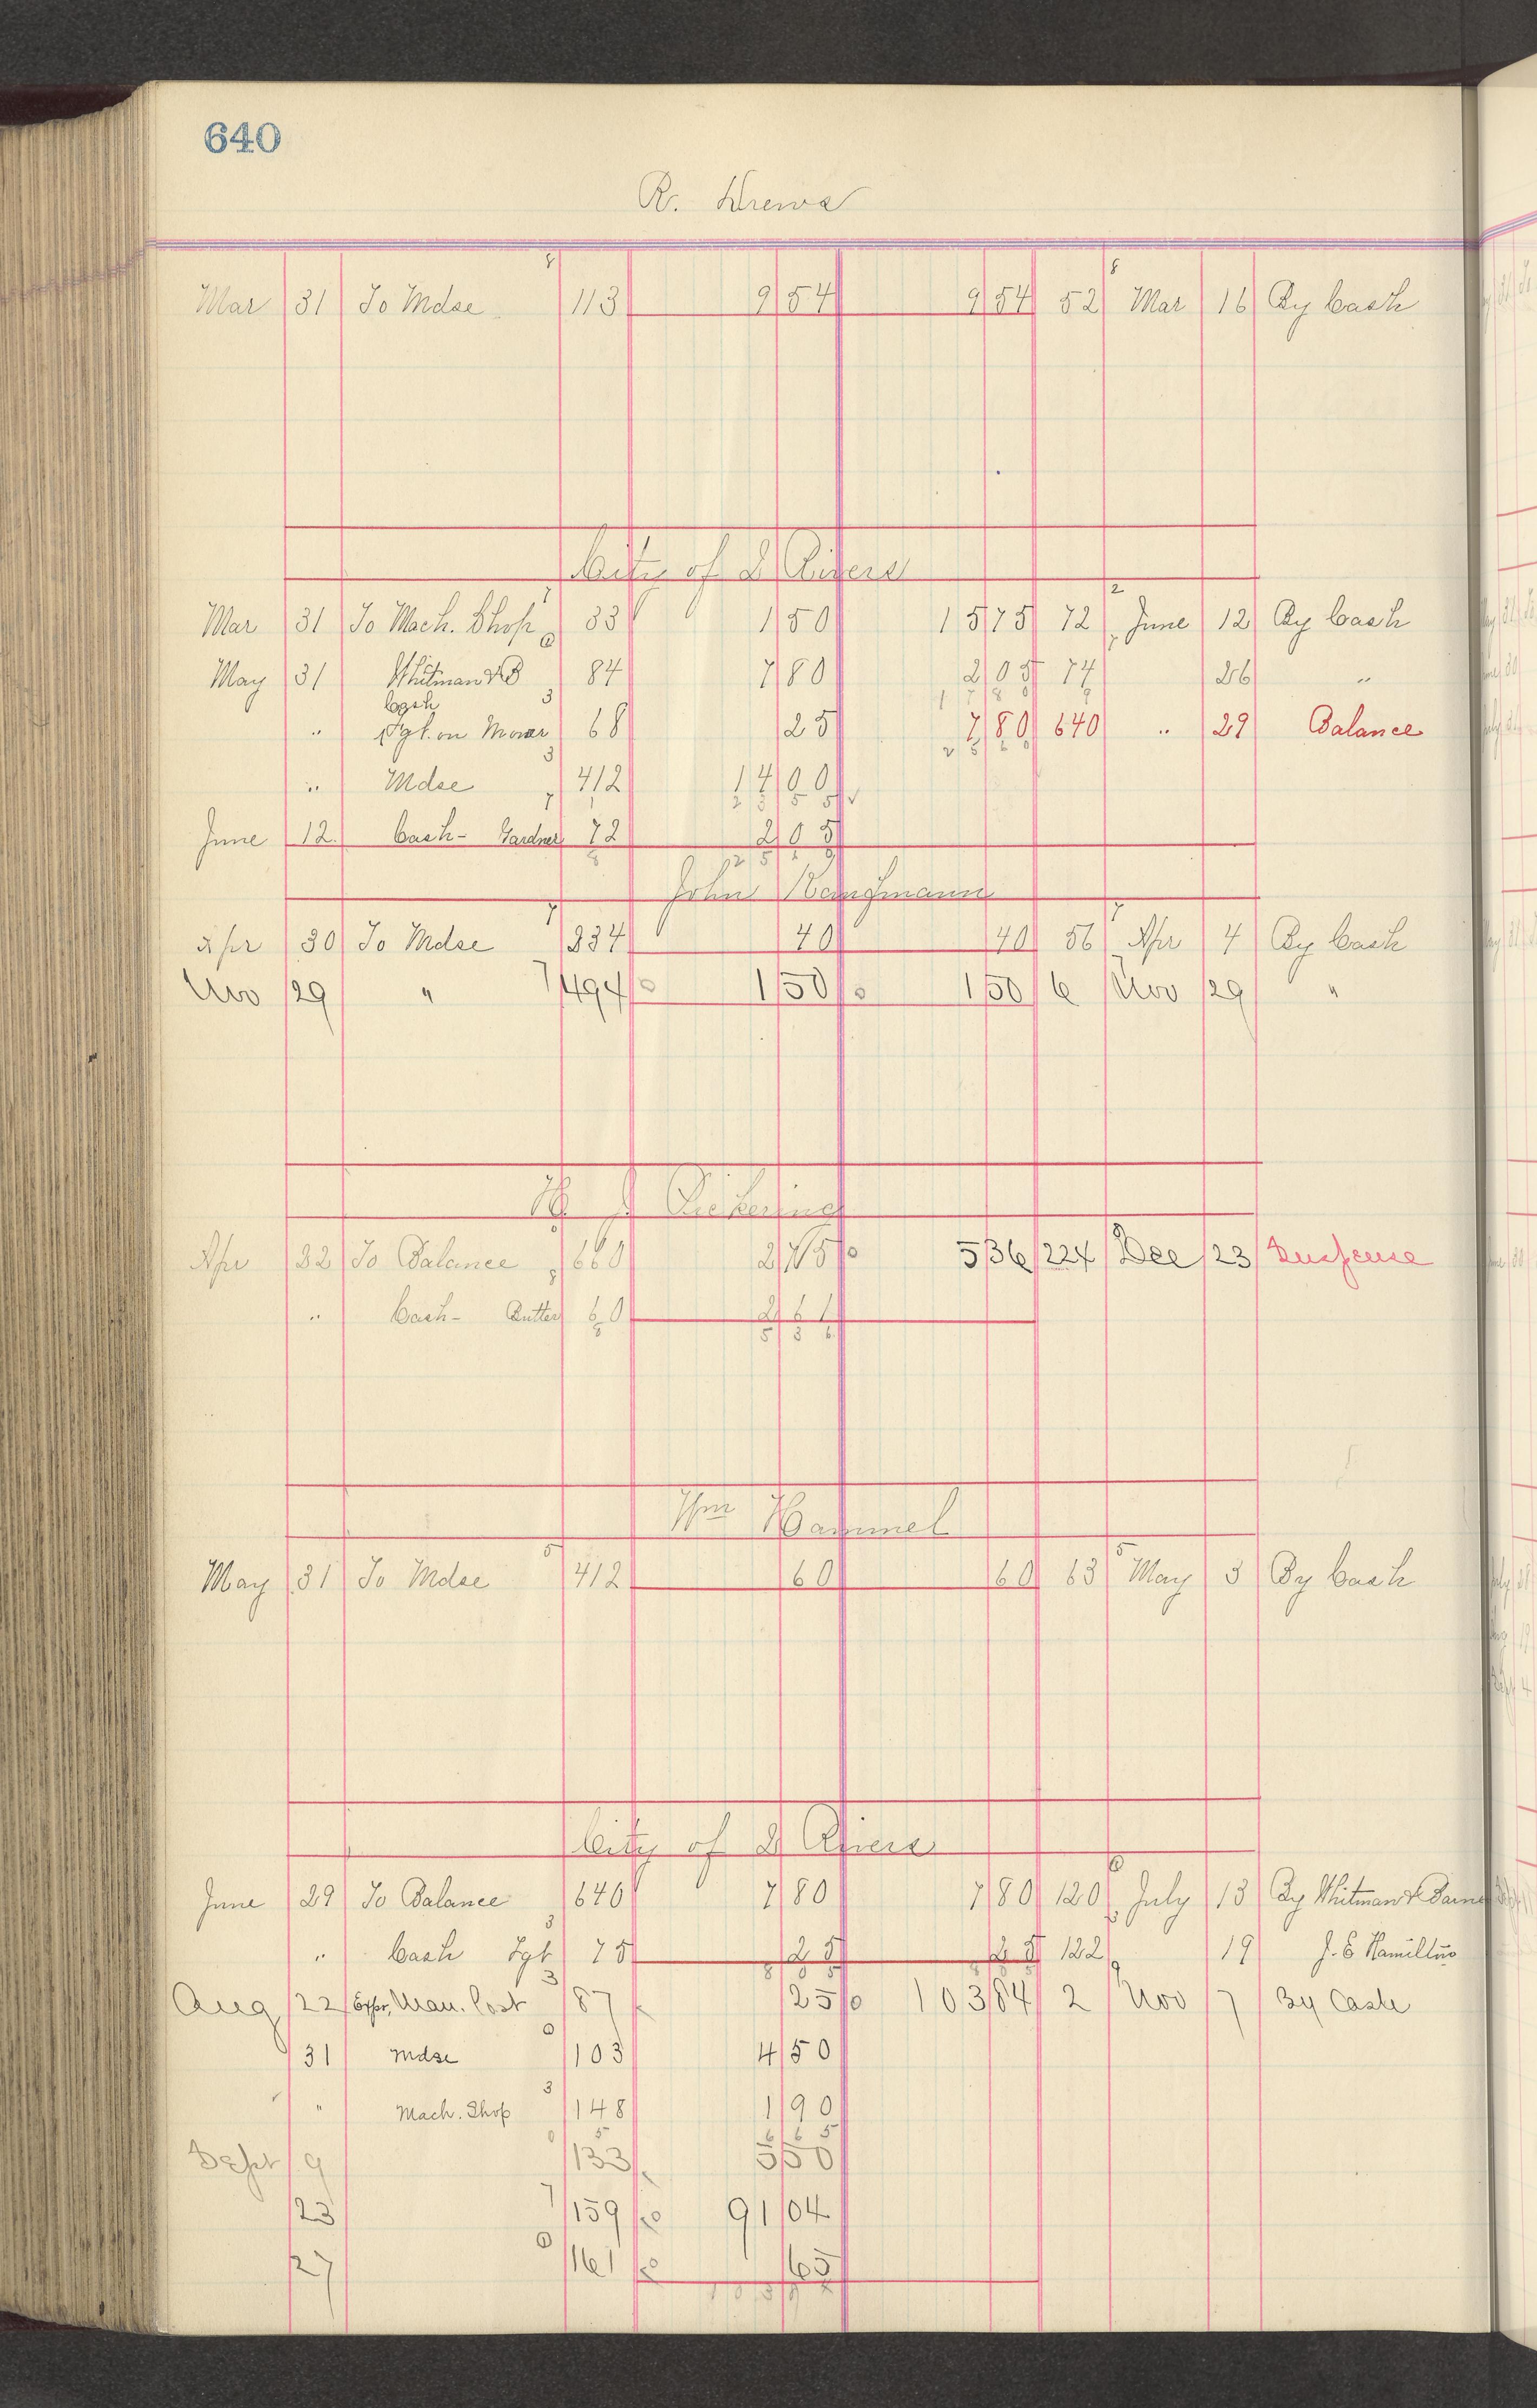 640
R. Drews
Mar 31 To Mdse 113 9 54 9 54 52 Mar 16 By Cash
City of 2 Rivers
Mar 31 To Mach. Shop 33 1 50 15 75 72 June 12 By Cash
May 31 Whitman & B 84 7 80 2 05 74 26 "
" Cash Fgt. on Mower 68 25 7 80 640 " 29 Balance
" Mdse 412 14 00
June 12 Cash - Gardner 72 2 05
John Kaufmann
Apr 30 To Mdse 334 40 40 56 Apr 4 By Cash
Nov 29 " 494 1 50 1 50 6 Nov 29 "
Pickering
Apr 22 To Balance 660 2 75 5 36 224 Dec 23 Suspense
" Cash - Butter 60 2 61
5 36
Wm Hammel
May 31 To Mdse 412 60 60 63 May 3 By Cash
City of 2 Rivers
June 29 To Balance 640 7 80 7 80 120 July 13 By Whitman &
" Cash Fgt 75 25 25 122 19 J. E. Hamilton
Aug 22 Expr, Man. Post 87 25 103 84 2 Nov 7 By Cash
31 Mdse 103 4 50
" Mach. Shop 148 1 90
6 65
Sept 9 133 5 50
23 159 91 04
27 161 65